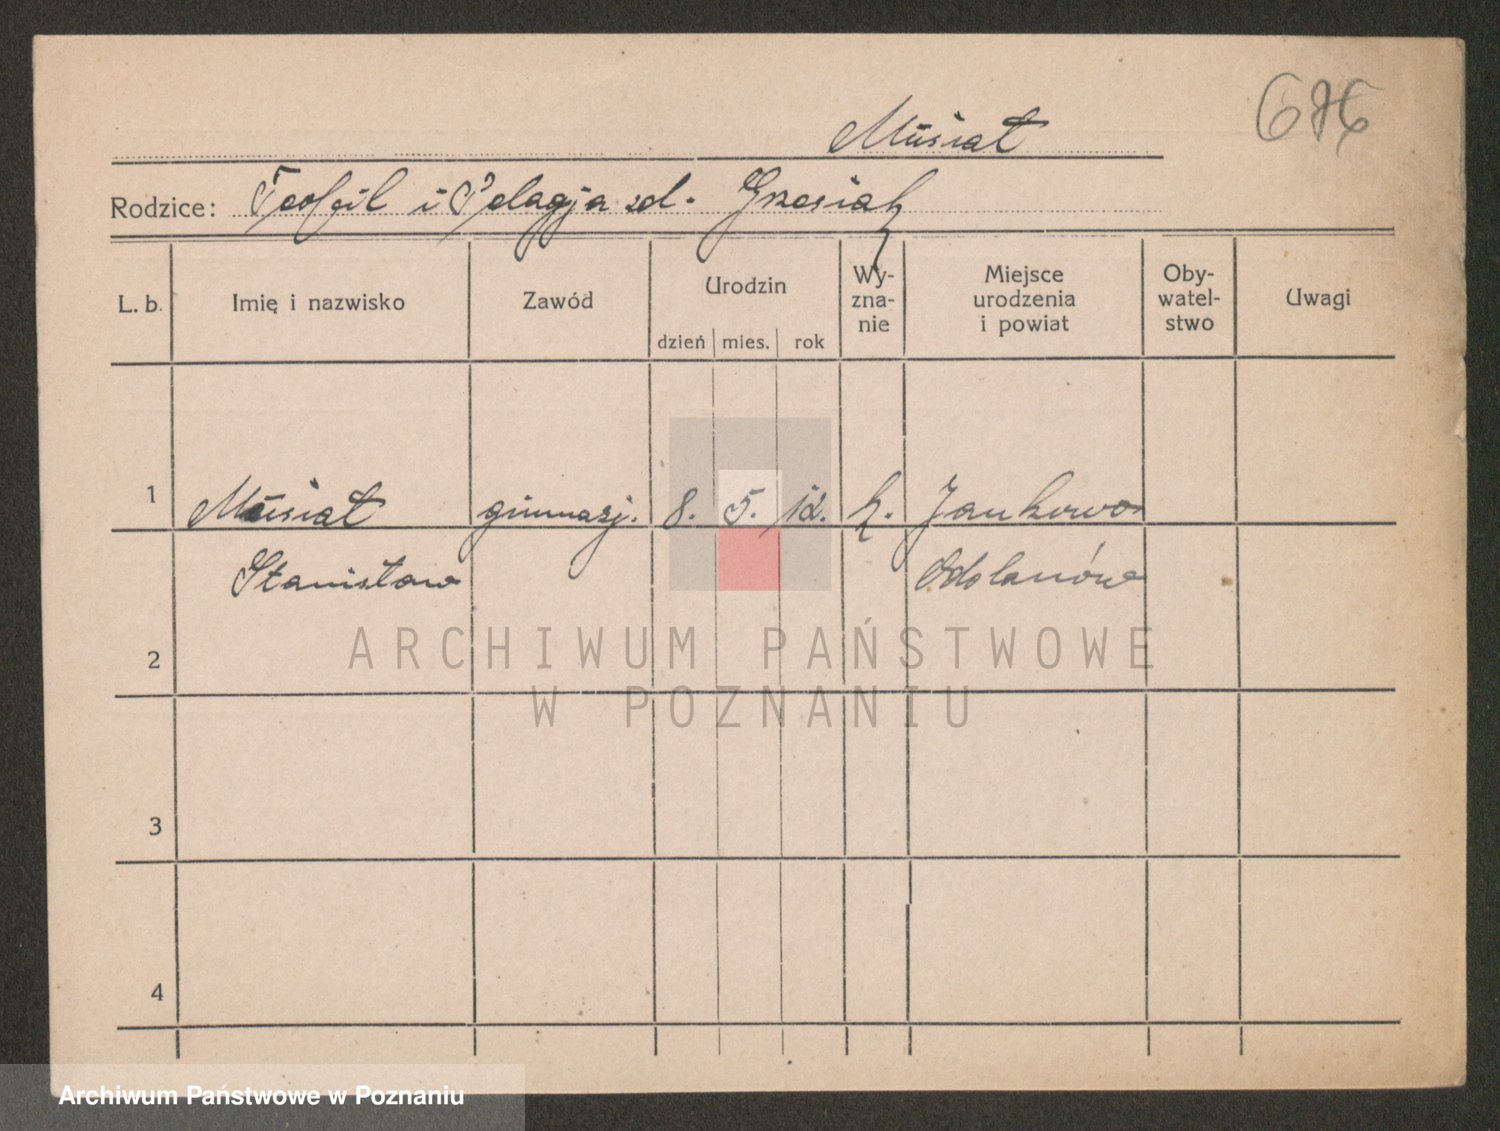 676
Musiał
Rodzice: Teofil i Pelagja zd. Grzesiak
L. b. Imię i nazwisko Zawód Urodzin Wy-zna-nie Miejsce urodzenia i powiat Oby-watel-stwo Uwagi
dzień mies. rok
1 Musiał gimnazj. 8. 5. 12. k. Jankowo
Stanisław Odolanów
2
ARCHIWUM PAŃSTWOWE
W POZNANIU
3
4
Archiwum Państwowe w Poznaniu